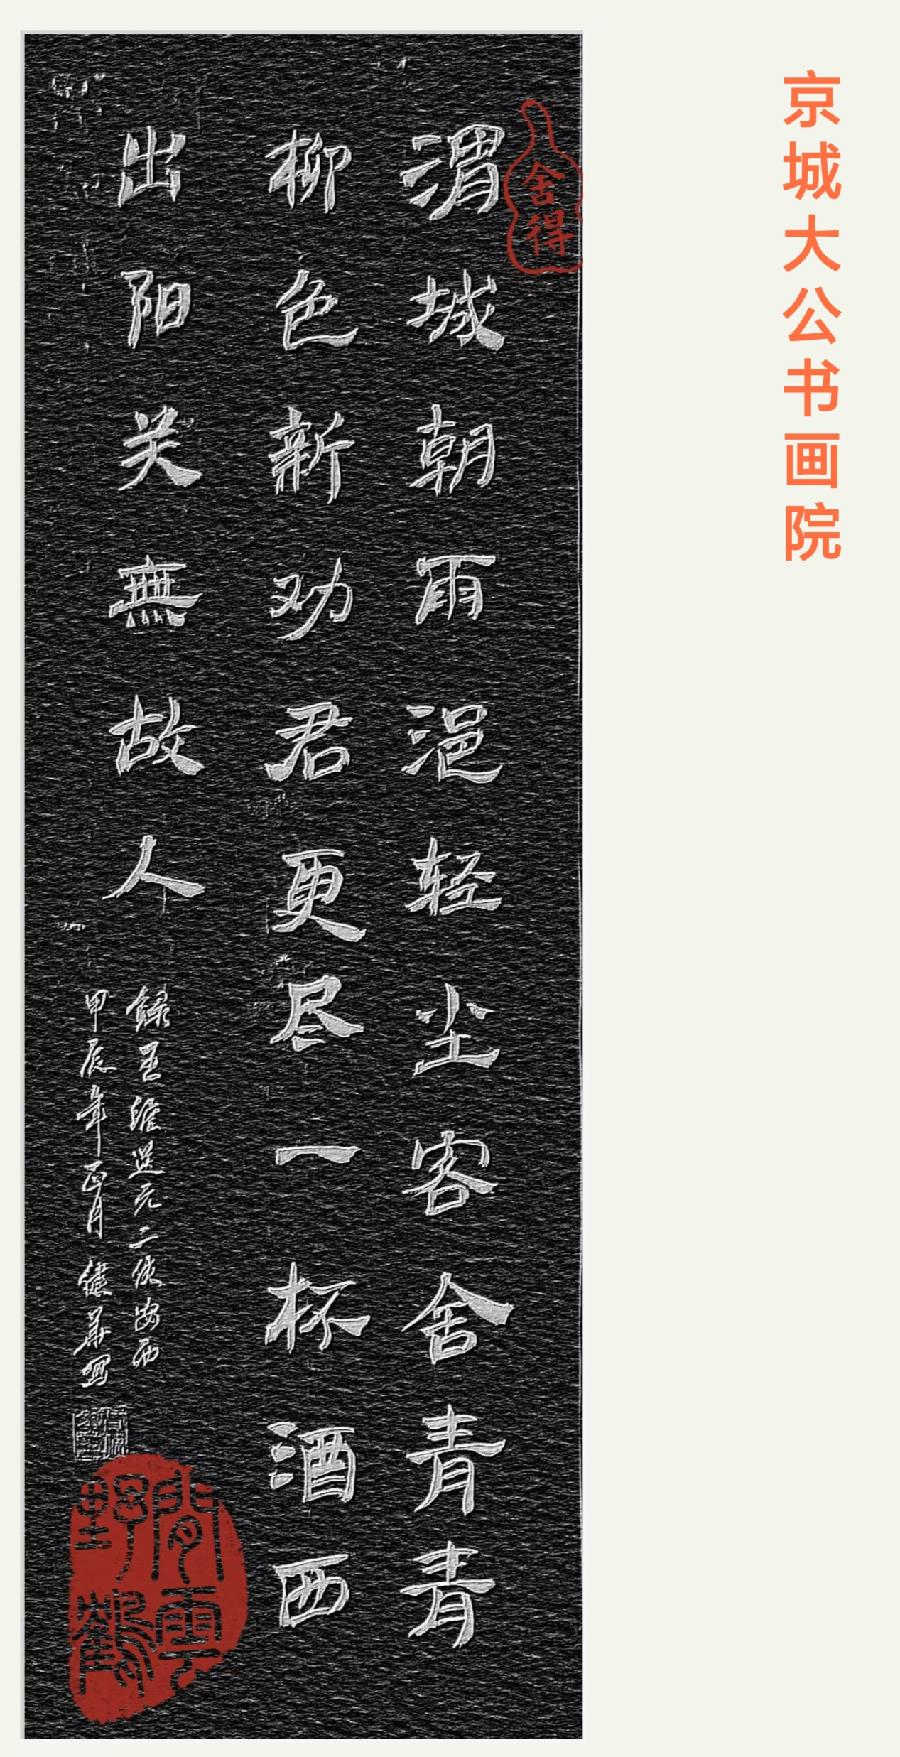 京城大公书画院
舍得
渭城朝雨浥轻尘客舍青青
柳色新劝君更尽一杯酒西
出阳关無故人
録王維送元二使安西
甲辰年正月健華寫
閒雲野鶴